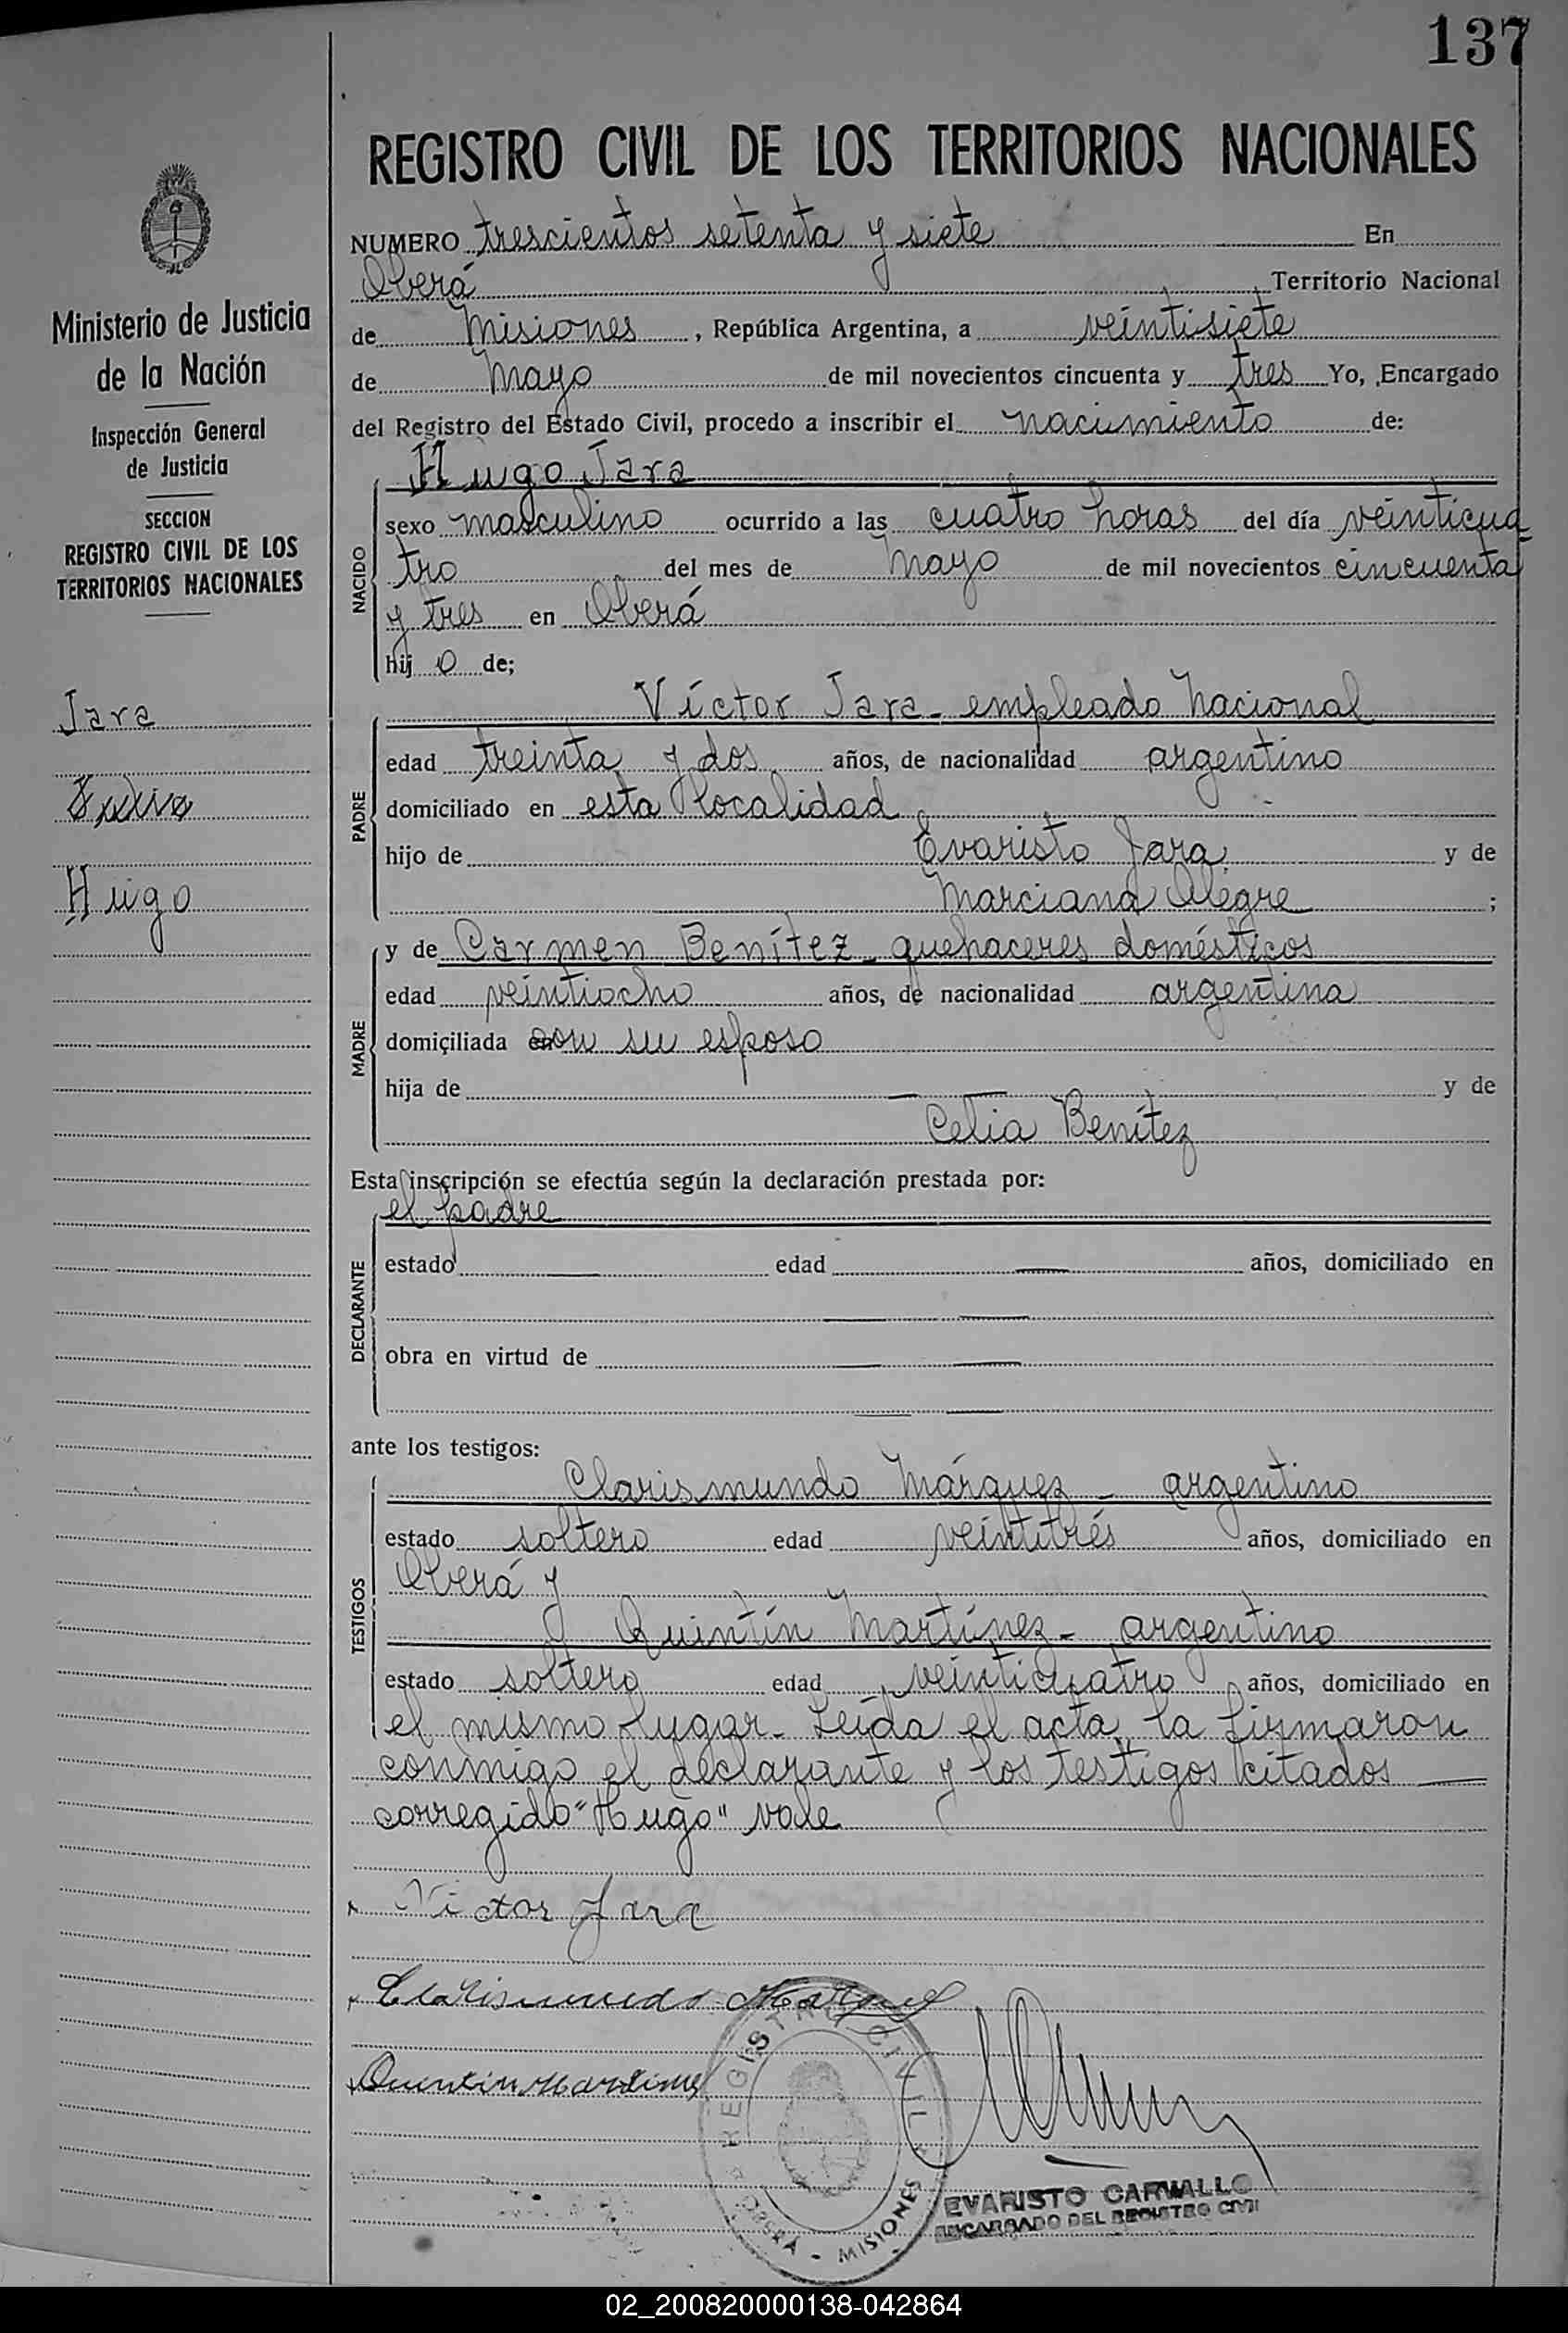 137
REGISTRO CIVIL DE LOS TERRITORIOS NACIONALES
Ministerio de Justicia
de la Nación
Inspección General
de Justicia
SECCION
REGISTRO CIVIL DE LOS
TERRITORIOS NACIONALES
Jara
Hugo
NUMERO trescientos setenta y siete En
Oberá Territorio Nacional
de Misiones, República Argentina, a veintisiete
de Mayo de mil novecientos cincuenta y tres Yo, Encargado
del Registro del Estado Civil, procedo a inscribir el nacimiento de:
NACIDO
Hugo Jara
sexo masculino ocurrido a las cuatro horas del día veinticua
tro del mes de Mayo de mil novecientos cincuenta
y tres en Oberá
hij o de;
PADRE
Víctor Jara - empleado Nacional
edad treinta y dos años, de nacionalidad argentino
domiciliado en esta localidad
hijo de Evaristo Jara y de
Marciana Alegre ;
MADRE
y de Carmen Benítez - quehaceres domésticos
edad veintiocho años, de nacionalidad argentina
domiciliada con su esposo
hija de — — y de
Celia Benítez
Esta inscripción se efectúa según la declaración prestada por:
DECLARANTE
el padre
estado — edad — años, domiciliado en
— —
obra en virtud de — —
— —
ante los testigos:
TESTIGOS
Clarismundo Márquez - argentino
estado soltero edad veintitrés años, domiciliado en
Oberá y
Quintín Martínez - argentino
estado soltero edad veinticuatro años, domiciliado en
el mismo lugar - Leída el acta, la firmaron
conmigo el declarante y los testigos citados —
corregido "Hugo" vale
x Victor Jara
x Clarismundo Marquez
x Quintin Martinez
REGISTRO CIVIL
OBERÁ - MISIONES
EVARISTO CARVALLO
ENCARGADO DEL REGISTRO CIVIL
02_200820000138-042864